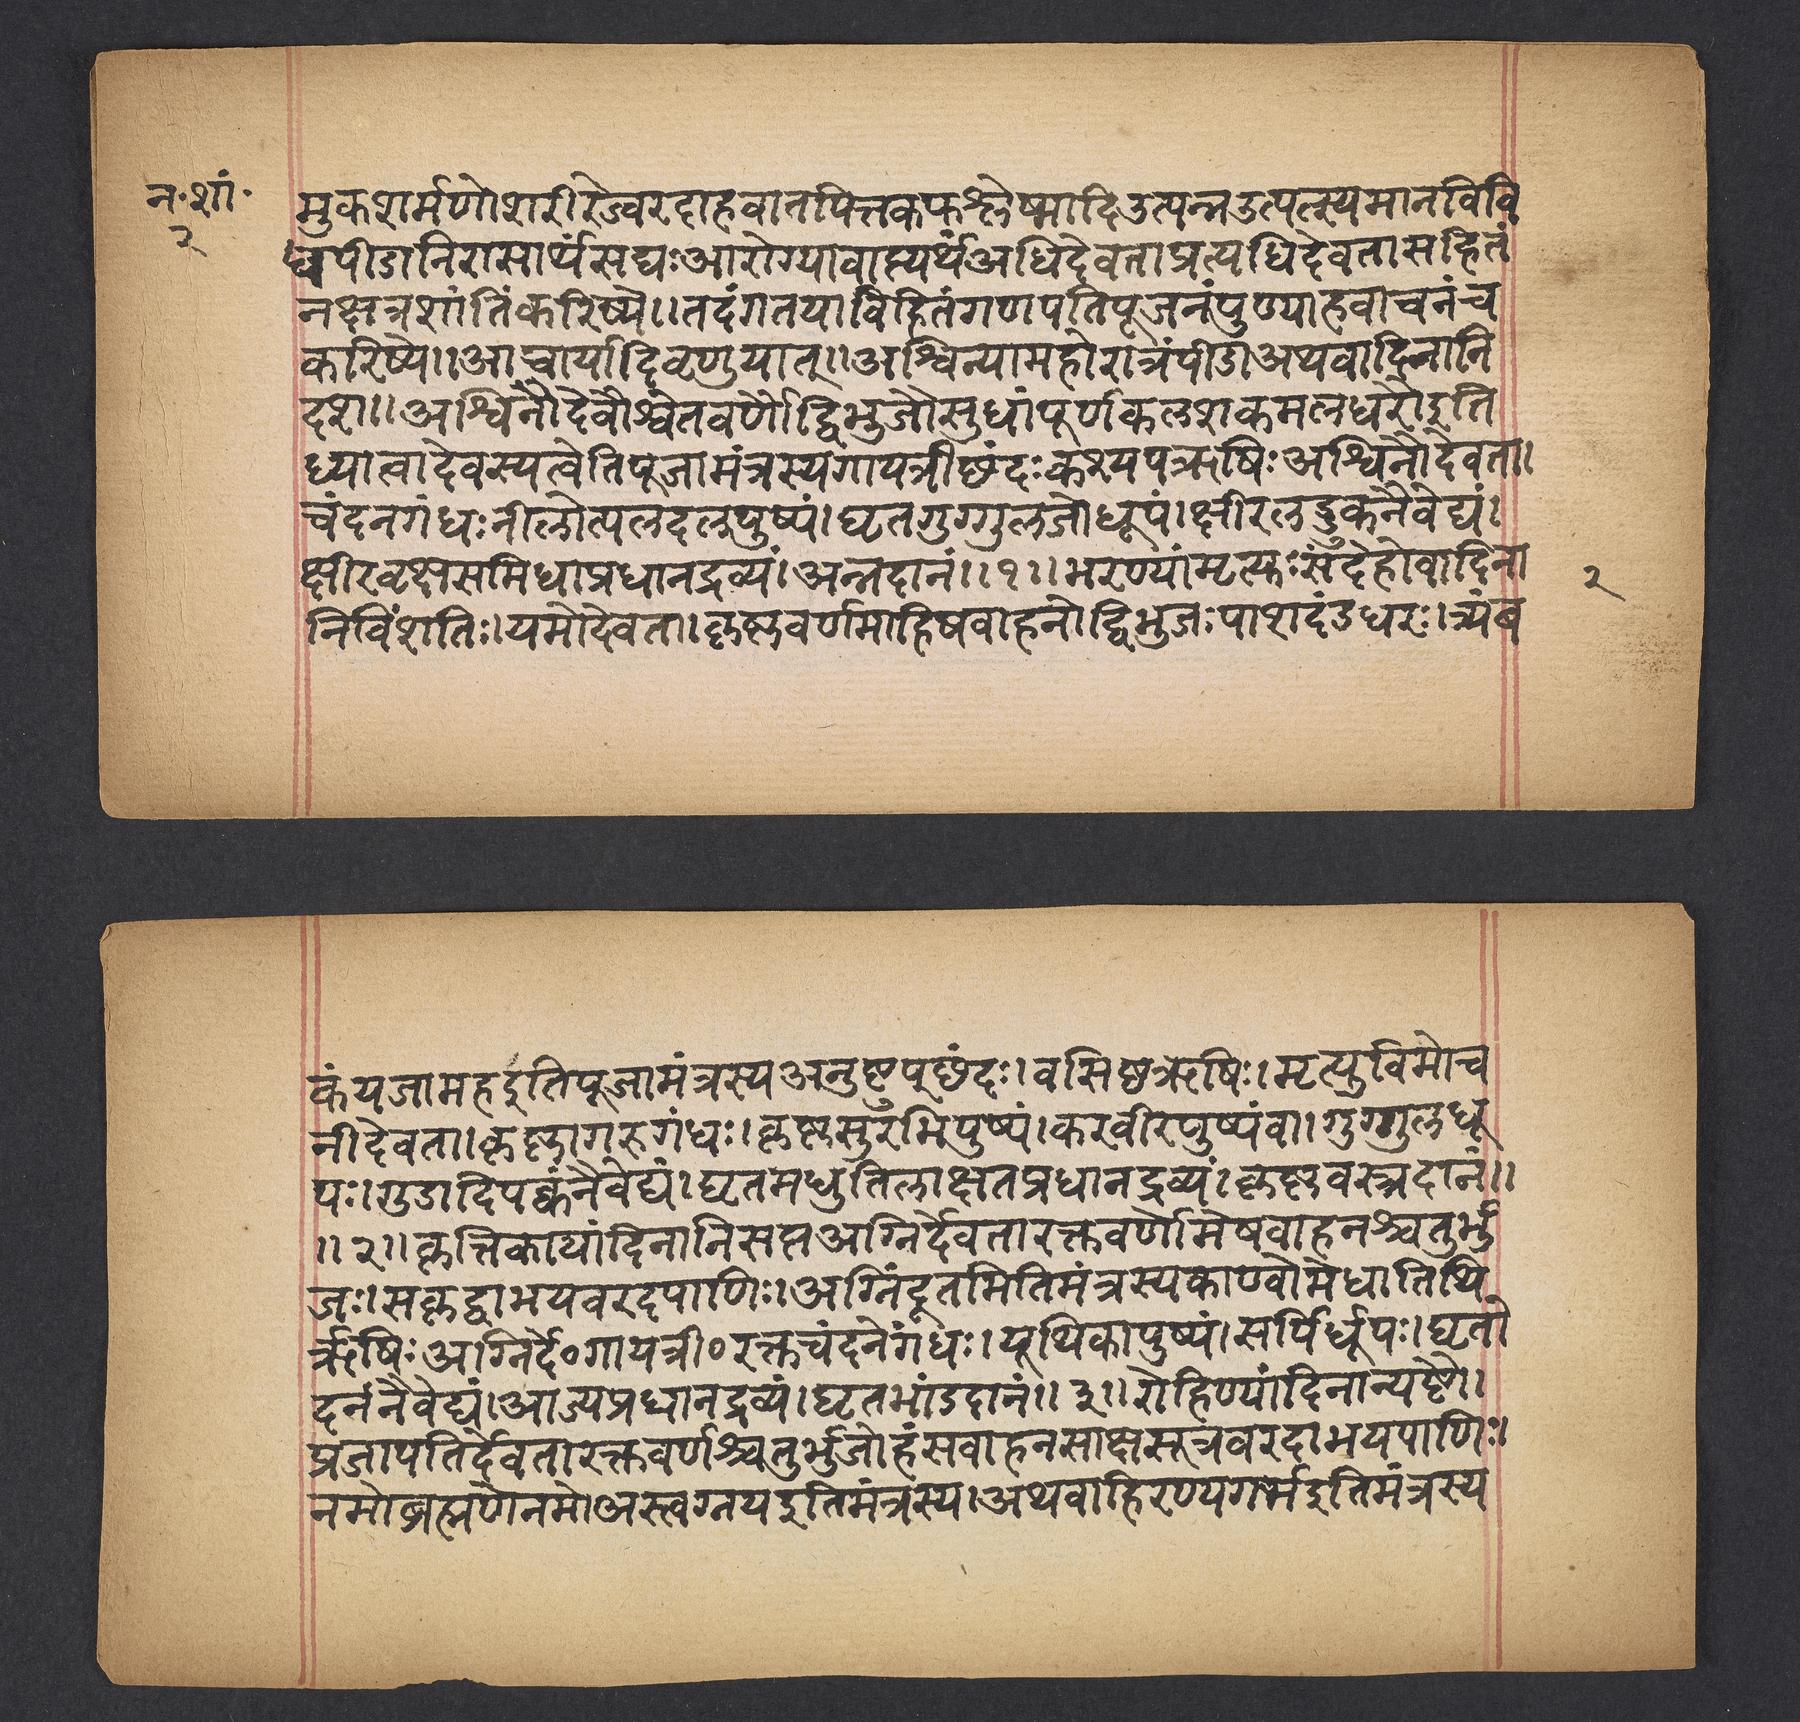 न॰शां॰
२
मुकशर्मणोशरीरेज्वरदाहवातपित्तकफश्लेष्मादिउत्पन्नउत्पत्स्यमानविवि
धपीडानिरासार्थंसद्यःआरोग्यावाप्त्यर्थंअधिदेवताप्रत्यधिदेवतासहितं
नक्षत्रशांतिंकरिष्ये॥तदंगतयाविहितंगणपतिपूजनंपुण्याहवाचनंच
करिष्ये॥आचार्यादिवृणुयात्॥अश्विन्यामहोरात्रंपीडाअथवादिनानि
दश॥अश्विनौदेवौश्वेतवर्णौद्विभुजौसुधापूर्णकलशकमलधरौइति
ध्यात्वादेवस्यत्वेतिपूजामंत्रस्यगायत्रीछंदःकश्यपऋषिःअश्विनौदेवता।
चंदनगंधःनीलोत्पलदलपुष्पं।घृतगुग्गुलजोधूपं।क्षीरलड्डुकनैवेद्यं।
क्षीरवृक्षसमिधाप्रधानद्रव्यं।अन्नदानं॥१॥भरण्यांमृत्युःसंदेहोवादिना
२
निविंशतिः।यमोदेवता।कृष्णवर्णमाहिषवाहनोद्विभुजःपाशदंडधरः।त्र्यंब
कंयजामहइतिपूजामंत्रस्यअनुष्टुप्छंदः।वसिष्ठऋषिः।मृत्युविमोच
नीदेवता।कृष्णागरुगंधः।कृष्णसुरभिपुष्पं।करवीरपुष्पंवा।गुग्गुलधू
पः।गुडादिपक्वंनैवेद्यं।घृतमधुतिलाक्षतप्रधानद्रव्यं।कृष्णवस्त्रदानं॥
॥२॥कृत्तिकायांदिनानिसप्तअग्निर्देवतारक्तवर्णोमेषवाहनश्चतुर्भु
जः।सकृद्वाभयवरदपाणिः।अग्निंदूतमितिमंत्रस्यकाण्वोमेधातिथि
र्ऋषिःअग्निर्दे॰गायत्री॰रक्तचंदनेगंधः।यूथिकापुष्पं।सर्पिर्धूपः।घृतौ
दनंनैवेद्यं।आज्यप्रधानद्रव्यं।घृतभांडदानं॥३॥रोहिण्यांदिनान्यष्टौ।
प्रजापतिर्देवतारक्तवर्णश्चतुर्भुजोहंसवाहनसाक्षसूत्रवरदाभयपाणिः।
नमोब्रह्मणेनमोअस्त्वग्नयइतिमंत्रस्य।अथवाहिरण्यगर्भइतिमंत्रस्य